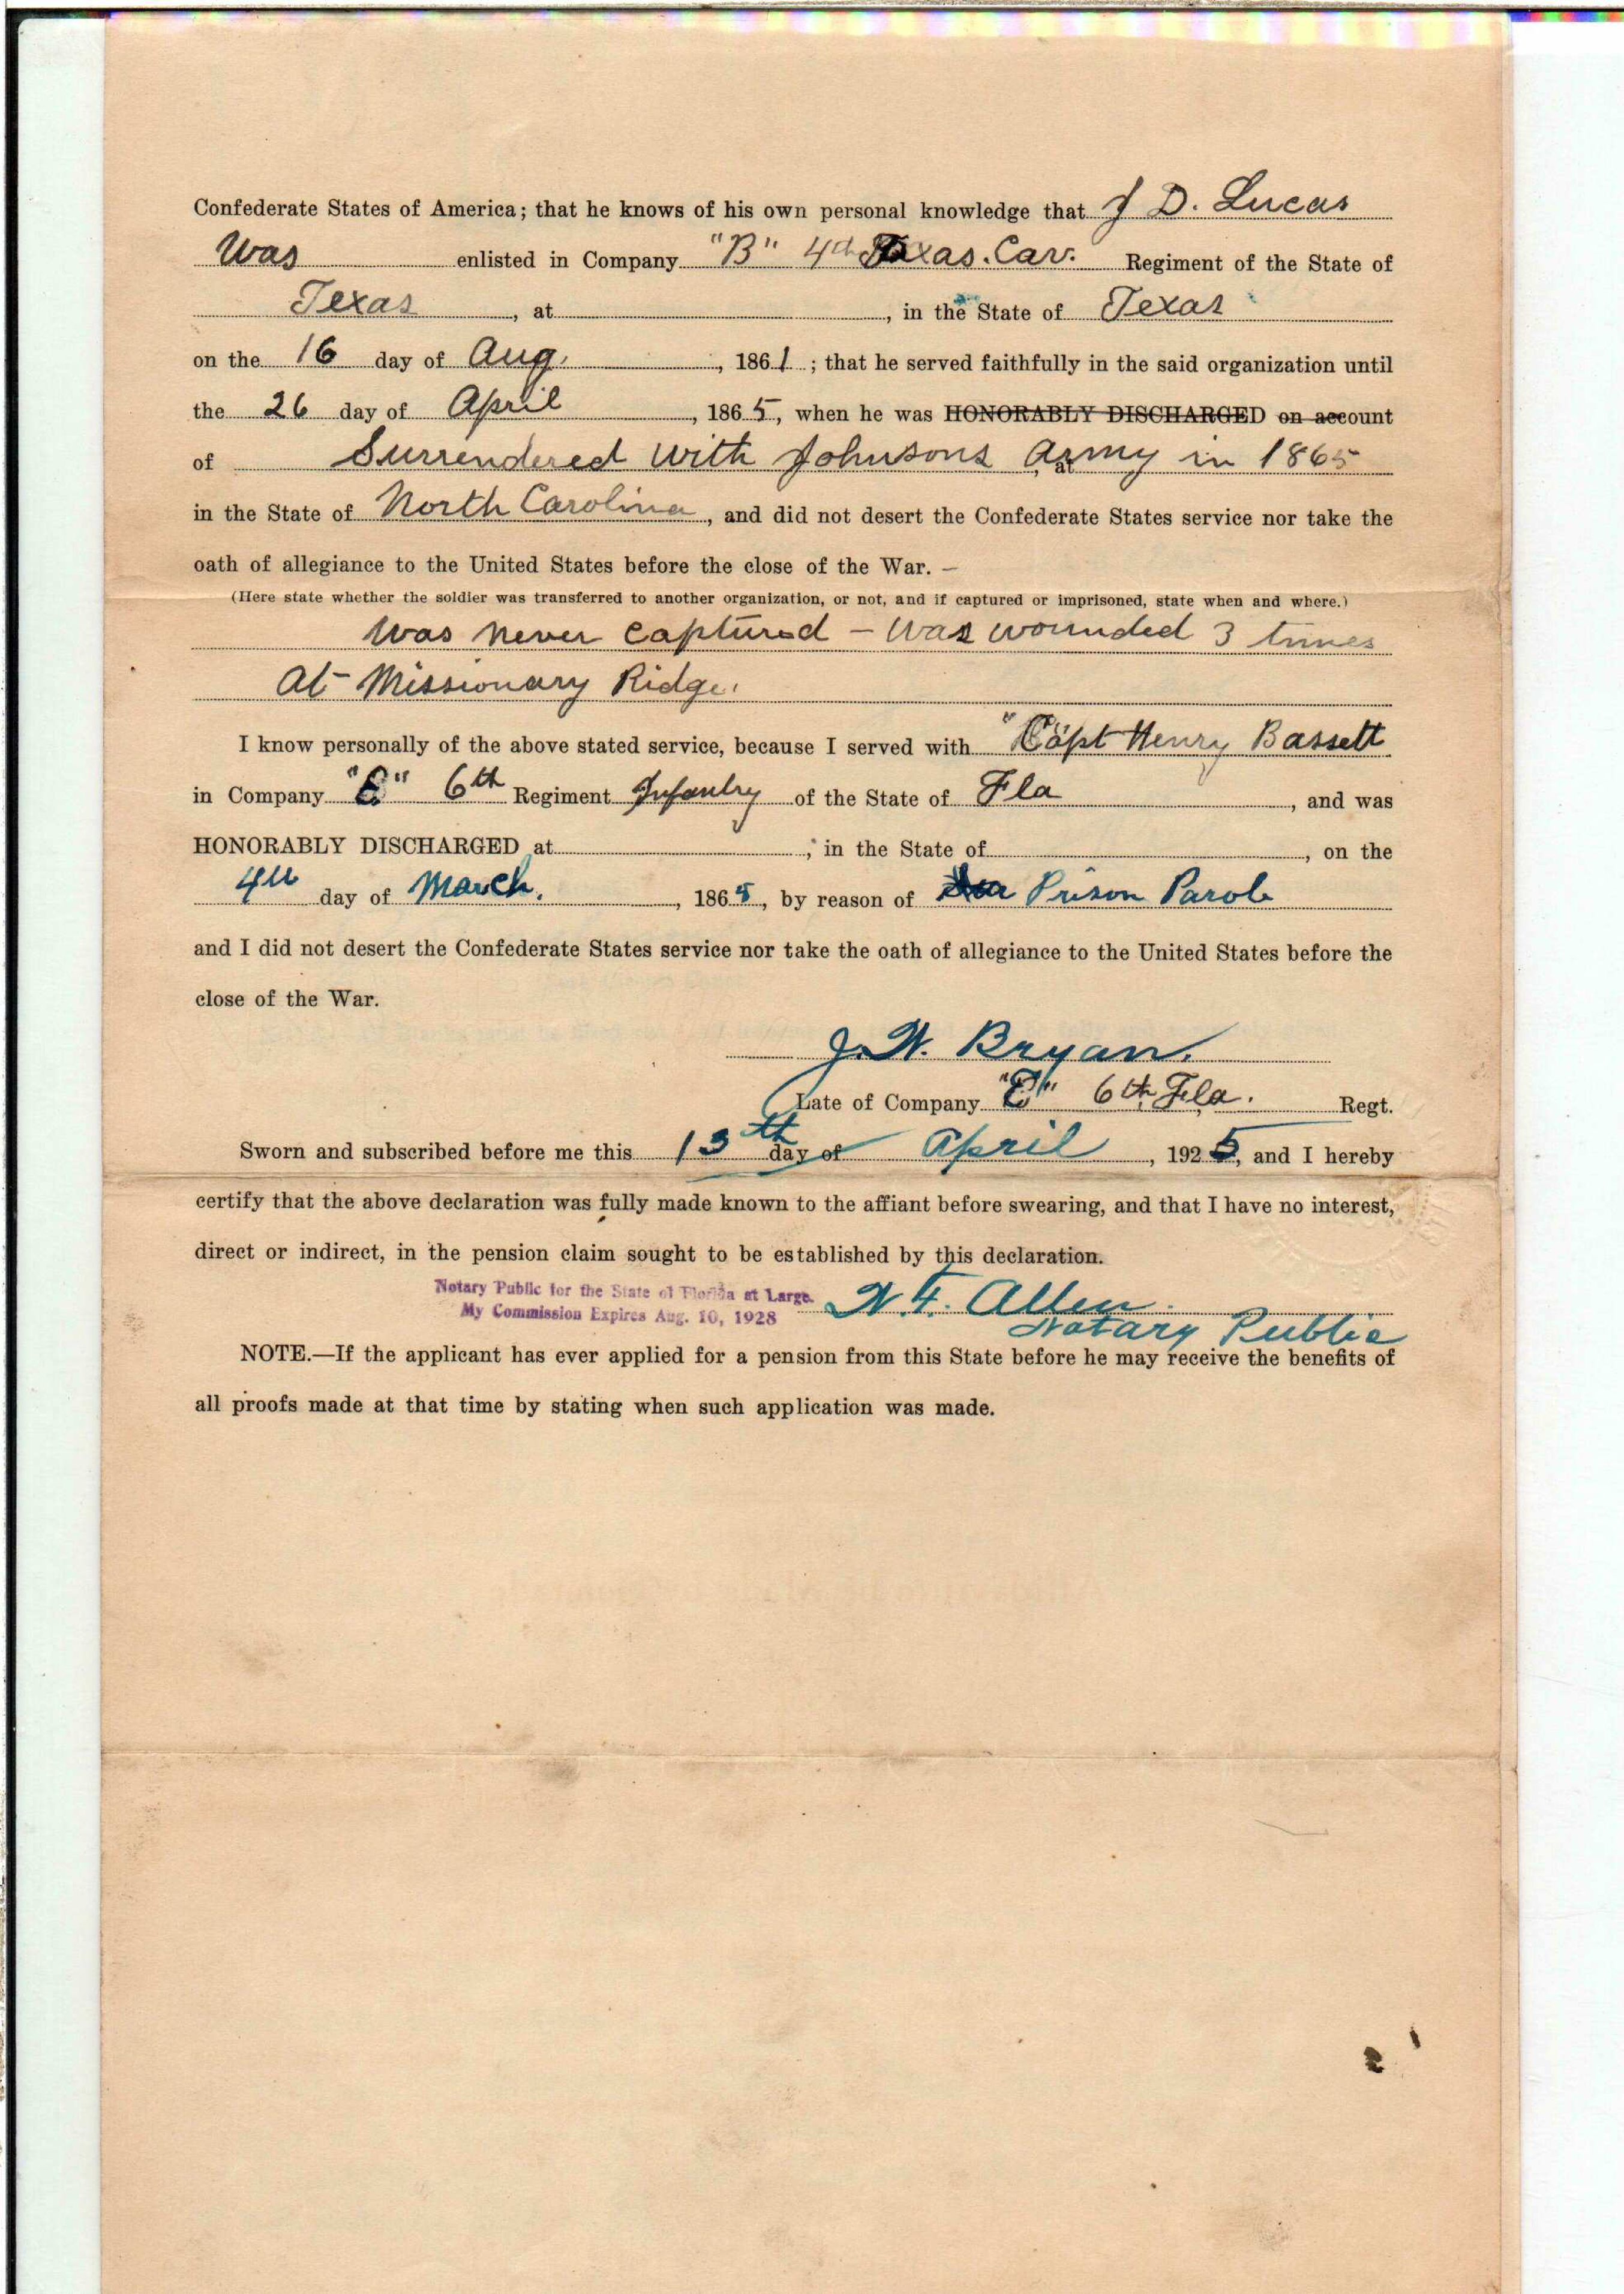 Confederate States of America; that he knows of his own personal knowledge that J D. Lucas
Was enlisted in Company "B" 4th Texas. Cav. Regiment of the State of
Texas, at, in the State of Texas
on the 16 day of Aug., 1861; that he served faithfully in the said organization until
the 26 day of April, 1865, when he was HONORABLY DISCHARGED on account
of Surrendered with Johnsons Army in 1865
at
in the State of North Carolina, and did not desert the Confederate States service nor take the
oath of allegiance to the United States before the close of the War. –
(Here state whether the soldier was transferred to another organization, or not, and if captured or imprisoned, state when and where.)
Was never captured – Was wounded 3 times
At Missionary Ridge.
I know personally of the above stated service, because I served with "Capt Henry Bassett
in Company "E" 6th Regiment Infantry of the State of Fla, and was
HONORABLY DISCHARGED at, in the State of, on the
4th day of March., 1865, by reason of Prison Parole
and I did not desert the Confederate States service nor take the oath of allegiance to the United States before the
close of the War.
J. W. Bryan.
Late of Company "E" 6th Fla. Regt.
Sworn and subscribed before me this 13th day of April, 1925, and I hereby
certify that the above declaration was fully made known to the affiant before swearing, and that I have no interest,
direct or indirect, in the pension claim sought to be established by this declaration.
Notary Public for the State of Florida at Large.
My Commission Expires Aug. 10, 1928
W. F. Allen.
Notary Public
NOTE.—If the applicant has ever applied for a pension from this State before he may receive the benefits of
all proofs made at that time by stating when such application was made.